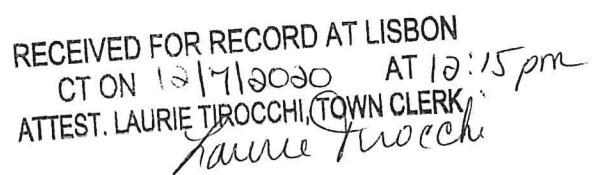 RECEIVED FOR RECORD AT LISBON
CT ON 12/7/2020 AT 12:15 pm
ATTEST. LAURIE TIROCCHI, TOWN CLERK
Laurie Tirocchi